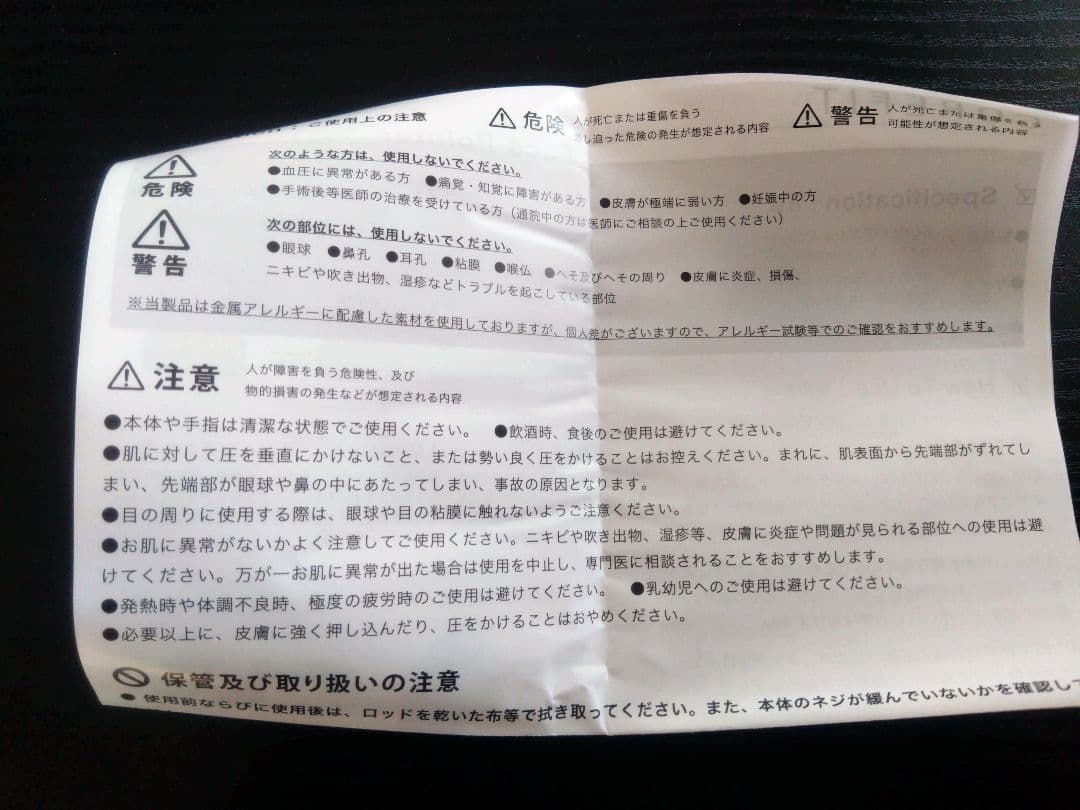 ご使用上の注意
危険 人が死亡または重傷を負う
差し迫った危険の発生が想定される内容
警告 人が死亡または重傷を負う
可能性が想定される内容
危険
次のような方は、使用しないでください。
●血圧に異常がある方 ●痛覚・知覚に障害がある方 ●皮膚が極端に弱い方 ●妊娠中の方
●手術後等医師の治療を受けている方（通院中の方は医師にご相談の上ご使用ください）
警告
次の部位には、使用しないでください。
●眼球 ●鼻孔 ●耳孔 ●粘膜 ●喉仏 ●へそ及びへその周り ●皮膚に炎症、損傷、
ニキビや吹き出物、湿疹などトラブルを起こしている部位
※当製品は金属アレルギーに配慮した素材を使用しておりますが、個人差がございますので、アレルギー試験等でのご確認をおすすめします。
注意 人が障害を負う危険性、及び
物的損害の発生などが想定される内容
●本体や手指は清潔な状態でご使用ください。 ●飲酒時、食後のご使用は避けてください。
●肌に対して圧を垂直にかけないこと、または勢い良く圧をかけることはお控えください。まれに、肌表面から先端部がずれてし
まい、先端部が眼球や鼻の中にあたってしまい、事故の原因となります。
●目の周りに使用する際は、眼球や目の粘膜に触れないようご注意ください。
●お肌に異常がないかよく注意してご使用ください。ニキビや吹き出物、湿疹等、皮膚に炎症や問題が見られる部位への使用は避
けてください。万が一お肌に異常が出た場合は使用を中止し、専門医に相談されることをおすすめします。
●発熱時や体調不良時、極度の疲労時のご使用は避けてください。 ●乳幼児へのご使用は避けてください。
●必要以上に、皮膚に強く押し込んだり、圧をかけることはおやめください。
保管及び取り扱いの注意
●使用前ならびに使用後は、ロッドを乾いた布等で拭き取ってください。また、本体のネジが緩んでいないかを確認して